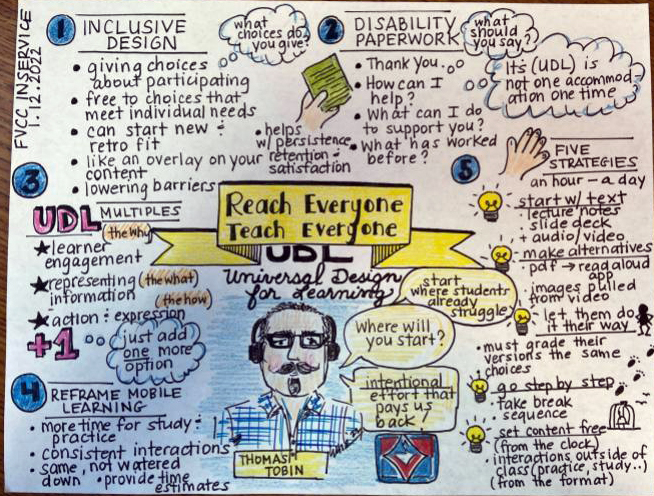 FVCC INSERVICE
1.12.2022
1 INCLUSIVE
DESIGN
what
choices do
you give?
• giving choices
about participating
• free to choices that
meet individual needs
• can start new :
retro fit
• like an overlay on your
content
• lowering barriers
• helps
w/ persistence
retention :
satisfaction
2 DISABILITY
PAPERWORK
what
should
you say?
• Thank you.
• How can I
help?
• What can I do
to support you?
• What has worked
before?
It's (UDL) is
not one accommod-
ation one time
3
UDL MULTIPLES
(the why)
★ learner
engagement
★ representing (the what)
information
(the how)
★ action : expression
+1
just add
one more
option
Reach Everyone
Teach Everyone
UDL
Universal Design
for Learning
start
where students
already
struggle
Where will
you start?
intentional
effort that
pays us
back!
THOMAS J
TOBIN
4 REFRAME MOBILE
LEARNING
• more time for study :
practice
• consistent interactions
• same, not watered
down • provide time
estimates
5 FIVE
STRATEGIES
an hour - a day
start w/ text
lecture notes
slide deck
+ audio/video
make alternatives
pdf → read aloud
app
images pulled
from video
let them do
it their way
• must grade their
versions the same
choices
go step by step
• take break
sequence
set content free
(from the clock)
• interactions outside of
class (practice, study..)
(from the format)